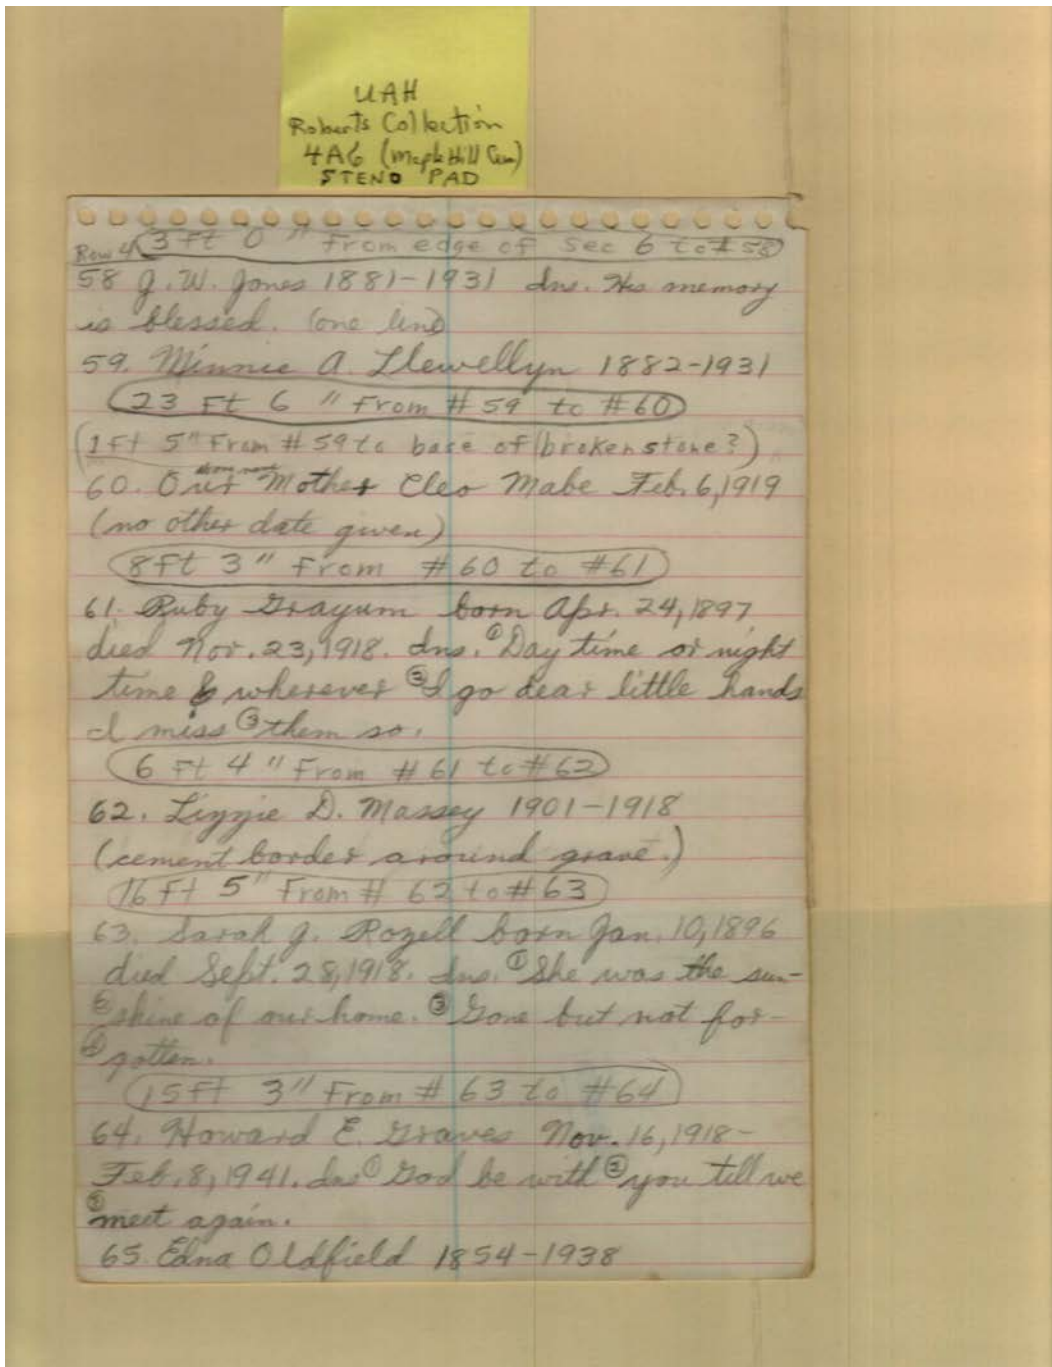 UAH
Roberts Collection
4A6 (Maple Hill Cem)
STENO PAD
Row 4 3 ft 0 " From edge of Sec 6 to # 58
58 J. W. Jones 1881-1931 dns. His memory
is blessed. (one line)
59. Minnie A. Llewellyn 1882-1931
23 Ft 6 " From # 59 to #60
(1 ft 5" From # 59 to base of (broken stone?)
above name
60. Our Mother Cleo Mabe Feb. 6, 1919
(no other date given)
8 Ft 3 " From # 60 to #61
61. Ruby Grayum born Apr. 24, 1897
died Nov. 23, 1918. dns. ① Day time or night
time & wherever ② I go dear little hands
I miss ③ them so.
6 Ft 4 " From # 61 to #62
62. Lizzie D. Massey 1901-1918
(cement border around grave.)
16 Ft 5" From # 62 to # 63
63. Sarah J. Rozell born Jan. 10, 1896
died Sept. 28, 1918. dns. ① She was the sun-
② shine of our home. ③ Gone but not for-
④ gotten.
15 Ft 3" From # 63 to #64
64. Howard E. Graves Nov. 16, 1918-
Feb. 8, 1941. dns ① God be with ② you till we
③ meet again.
65. Edna Oldfield 1854-1938